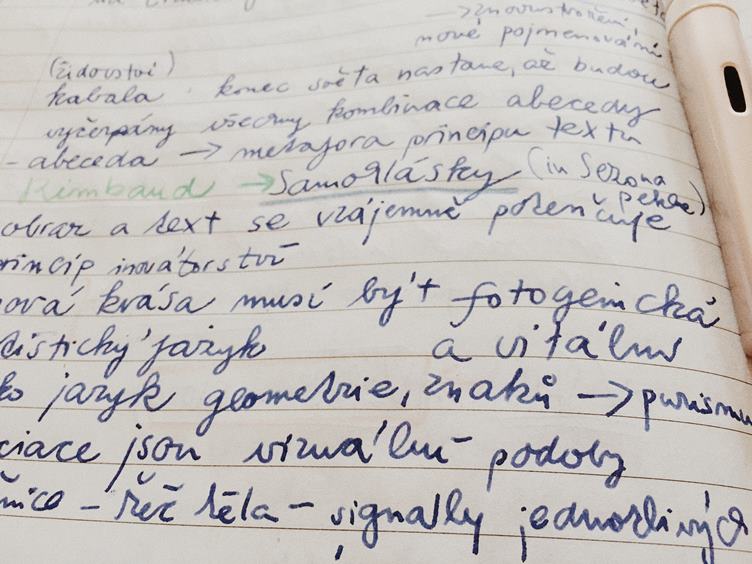 → znovustvoření,
nové pojmenování
(židovství)
kabala konec světa nastane, až budou
vyčerpány všechny kombinace abecedy
- abeceda → metafora principu textu
Rimbaud → Samohlásky (in Sezona
pekle)
obraz a text se vzájemně potencuje
princip inovátorství
ová krása musí být fotogenická
a vitální
distický jazyk
ko jazyk geometrie, znaků → purismu
ciace jsou vizuální podoby
čnice - řeč těla - signály jednotlivých